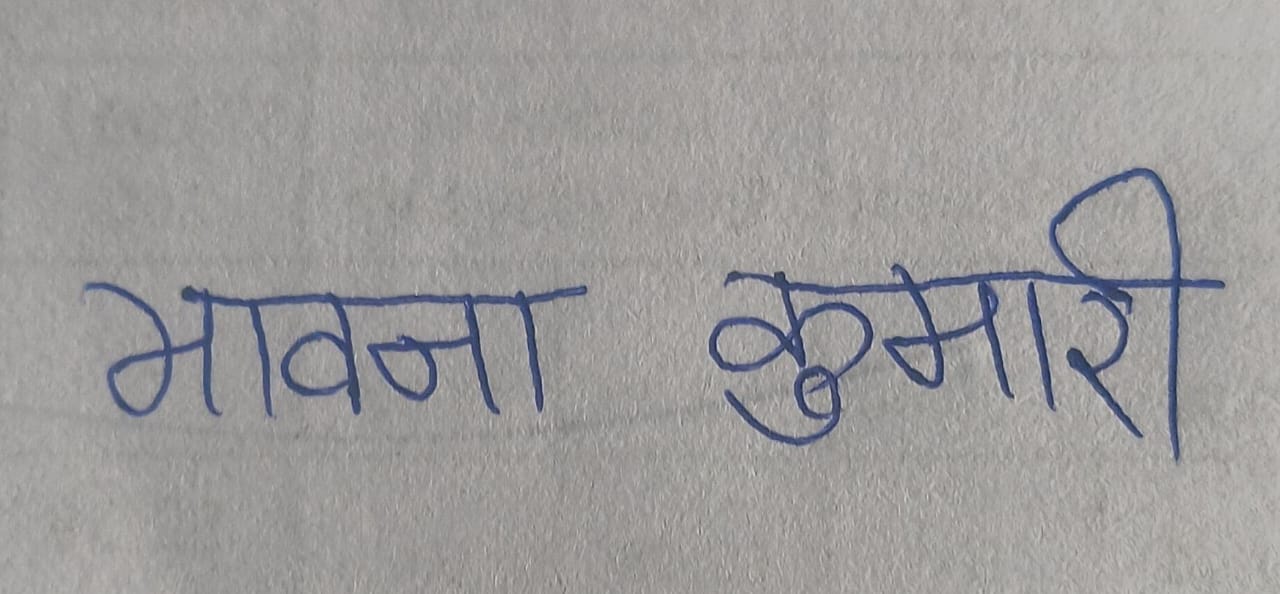 भावना कुमारी